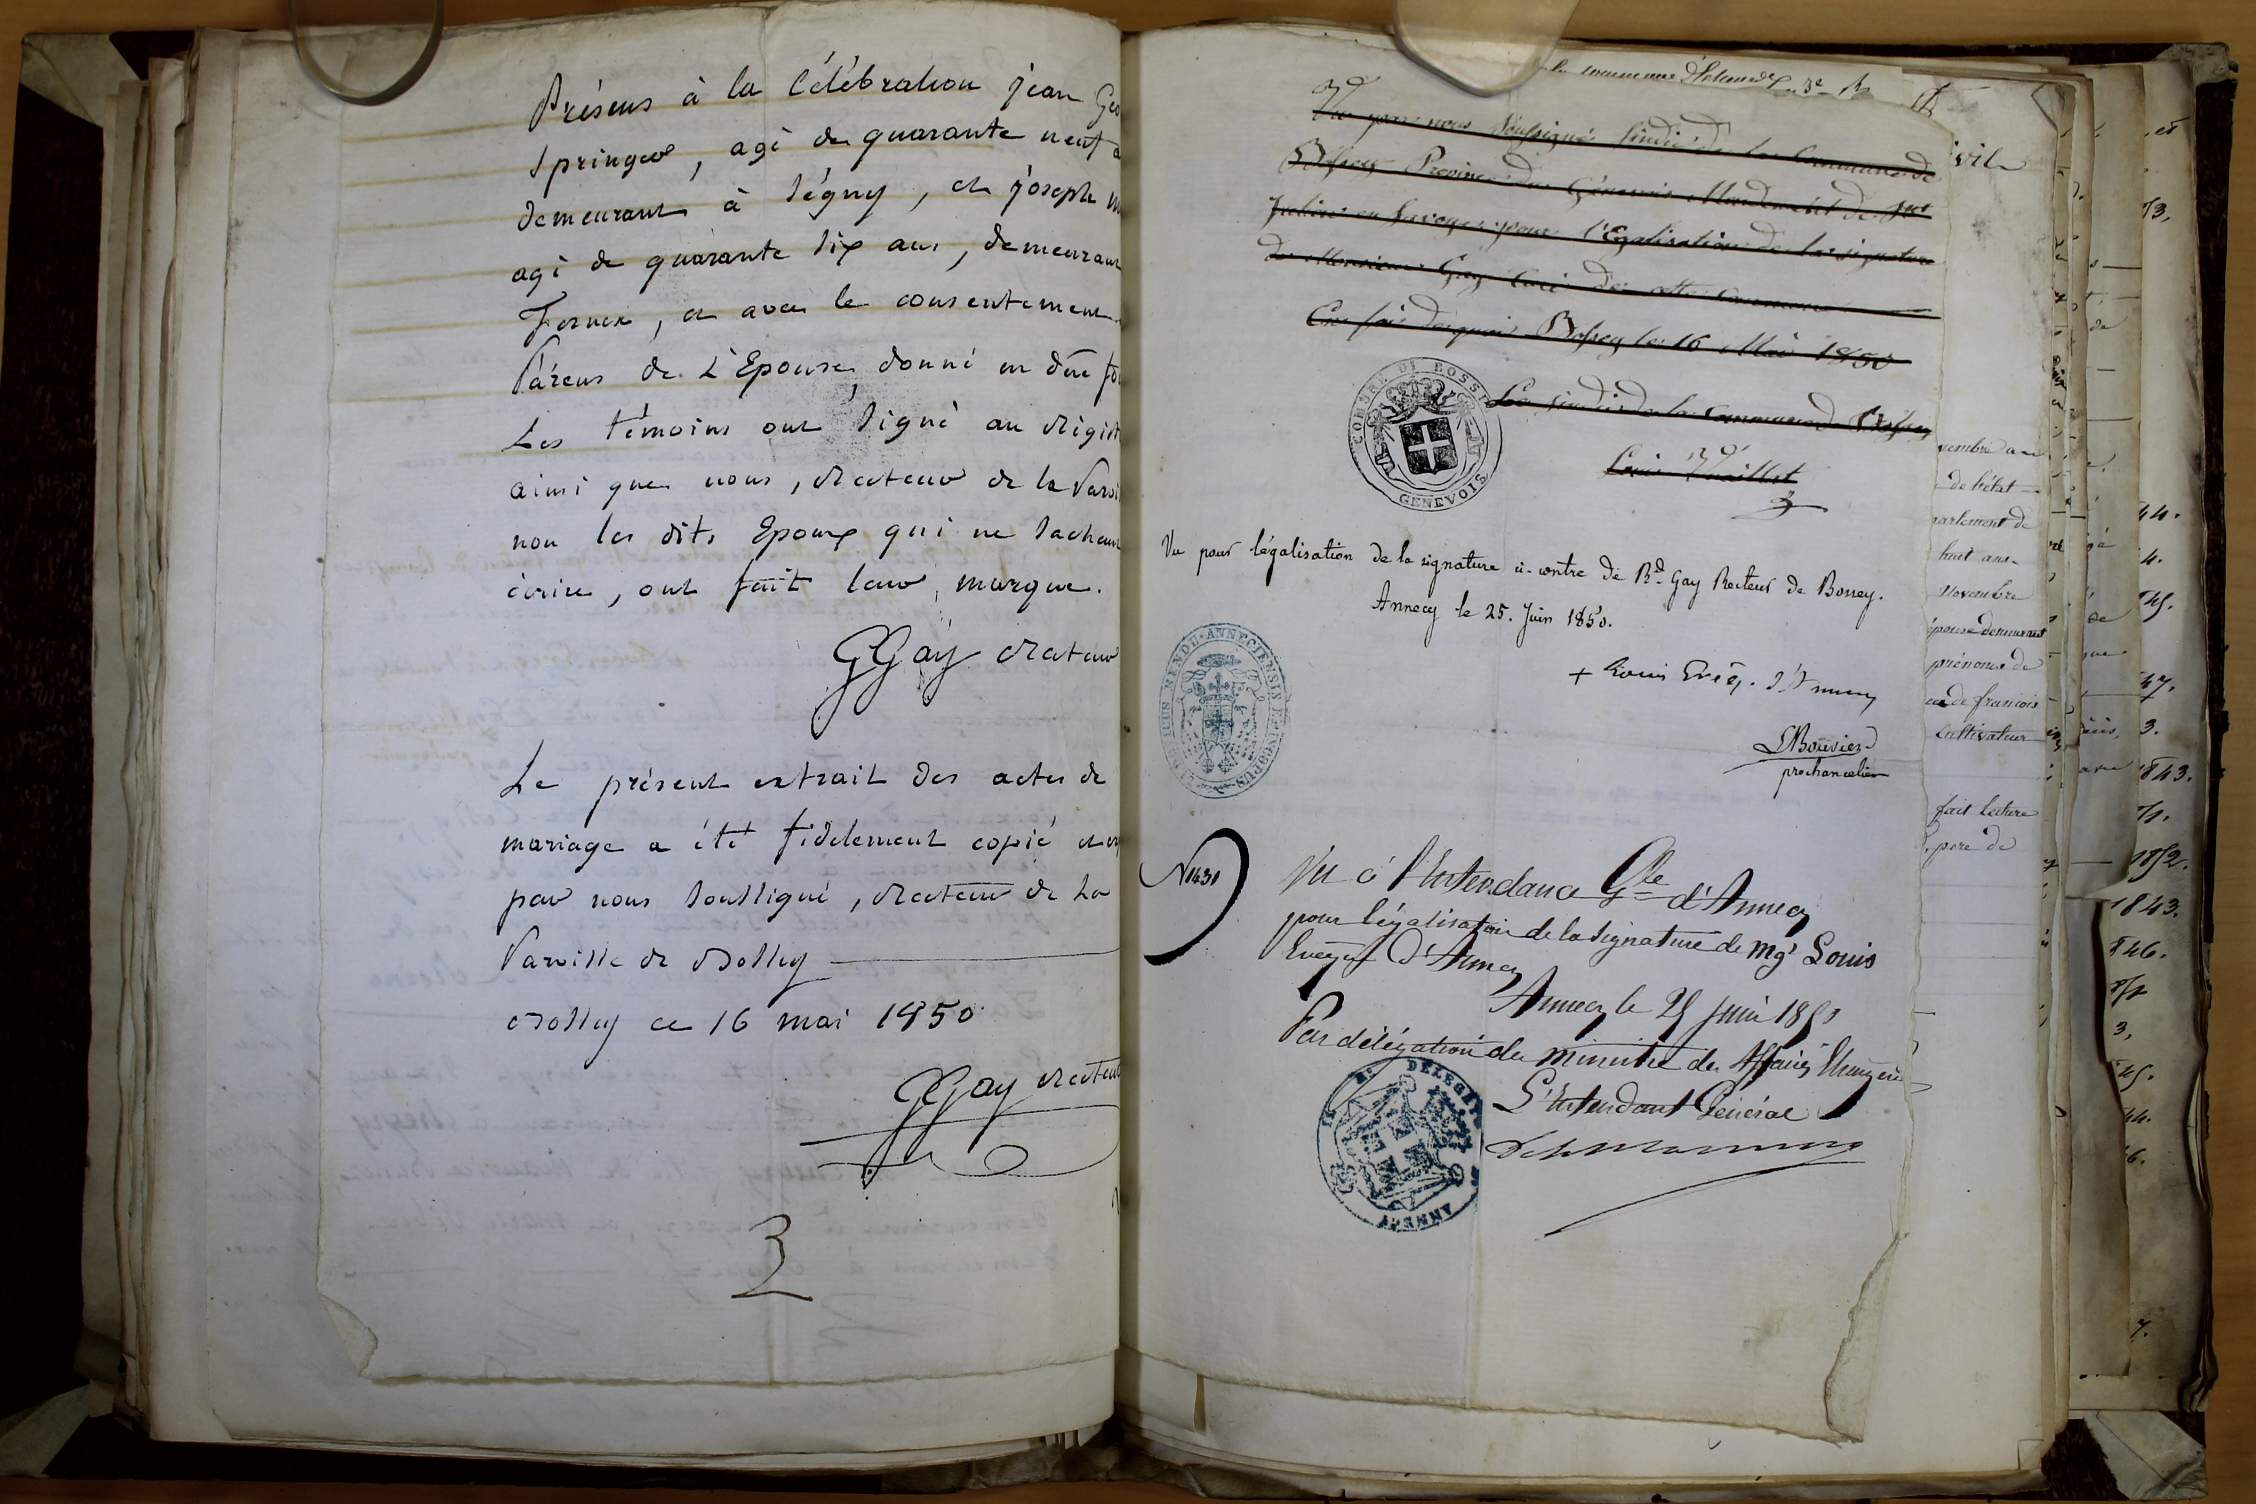 Présens à la Célébration jean Geo
Springer, agé de quarante neuf a
demeurant à Ségny, et joseph
agé de quarante six ans, demeurant
Fernex, et avec le consentement
Parens de L'Epouse, donné en dûe fo
Les témoins ont signé au régist
ainsi que nous, recteur de la Paroi
non les dits Epoux qui ne sachant
écrire, ont fait leur marque.
GGay recteur
Le présent extrait des actes de
mariage a été fidelement copié et
par nous soussigné, recteur de La
Paroisse de Bossey
Bossey ce 16 mai 1850
GGay recteur
3
Vu par nous Soussigné Sindic de la Commune de
Bossey Province du Génevois Mandement de St
Julien en Savoye pour l'Egalisation de la signature
de Monsieur Gay Curé de cette Commune
En foi de quoi Bossey le 16 Mai 1850
COMUNE DI BOSSEY
GENEVOIS
Le sindic de la Commune de Bossey
Vu pour légalisation de la signature ci-contre de Rd Gay Recteur de Bossey.
Annecy le 25. Juin 1850.
RENDU ANNECIENSIS EPISCOPUS
+ Louis Evêq. d'Annecy
Bouvier
prochancelier
N 1431
Vu à l'Intendance Gle d'Annecy
pour légalisation de la signature de Mgr Louis
Evêque d'Annecy
Annecy le 25 juin 1850
Par délégation du ministre des Affaires Etrangères
L'Intendant Général
ANNECY
vembre
de l'état
partement de
huit ans
Novembre
épouse demeurant
prénoms de
de francois
cultivateur
fait lecture
pere de
44.
4.
45.
47.
3.
1843.
1852.
1843.